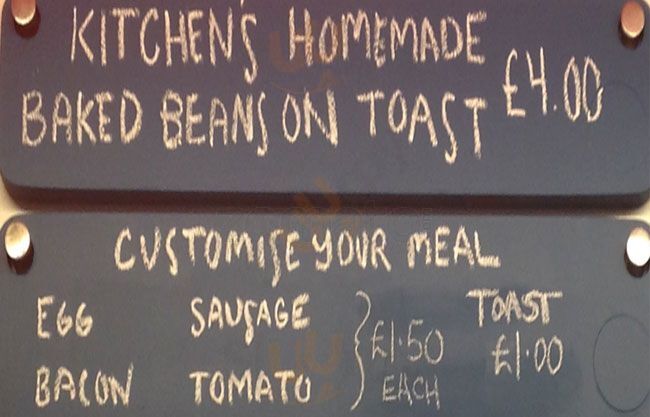 KITCHEN'S HOMEMADE
BAKED BEANS ON TOAST £4.00
CUSTOMISE YOUR MEAL
EGG SAUSAGE TOAST
£1.50 £1.00
BACON TOMATO EACH